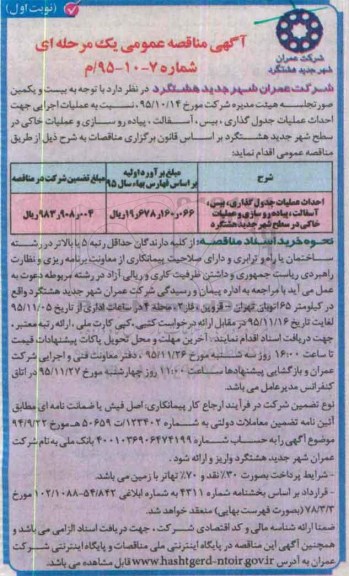 (نوبت اول)
شرکت عمران
شهر جدید هشتگرد
آگهی مناقصه عمومی یک مرحله ای
شماره ۷-۱۰-۹۵/م
شرکت عمران شهر جدید هشتگرد در نظر دارد با توجه به بیست و یکمین
صورتجلسه هیئت مدیره شرکت مورخ ۹۵/۱۰/۱۴، نسبت به عملیات اجرایی جهت
احداث عملیات جدول گذاری، بیس، آسفالت، پیاده رو سازی و عملیات خاکی در
سطح شهر جدید هشتگرد بر اساس قانون برگزاری مناقصات به شرح ذیل از طریق
مناقصه عمومی اقدام نماید:
شرح
مبلغ برآورد اولیه
بر اساس فهارس بهاء سال ۹۵
مبلغ تضمین شرکت در مناقصه
احداث عملیات جدول گذاری، بیس،
آسفالت، پیاده رو سازی و عملیات
خاکی در سطح شهر جدید هشتگرد
۱۹٫۶۷۸٫۱۶۰٫۰۶۶ ریال
۹۸۳٫۹۰۸٫۰۰۴ ریال
نحوه خرید اسناد مناقصه: از کلیه دارندگان حداقل رتبه ۵ یا بالاتر در رشته
ساختمان یا راه و ترابری و دارای صلاحیت پیمانکاری از معاونت برنامه ریزی و نظارت
راهبردی ریاست جمهوری و داشتن ظرفیت کاری و ریالی آزاد در رشته مربوطه دعوت به
عمل می آید با مراجعه به اداره پیمان و رسیدگی شرکت عمران شهر جدید هشتگرد واقع
در کیلومتر ۶۵ اتوبان تهران - قزوین، فاز ۲، محله ۴ در ساعات اداری از تاریخ ۹۵/۱۱/۰۵
لغایت تاریخ ۹۵/۱۱/۱۶ در مقابل ارائه درخواست کتبی، کپی کارت ملی، ارائه رتبه معتبر،
جهت دریافت اسناد اقدام نمایند. آخرین مهلت و محل تحویل پاکات پیشنهادات قیمت
تا ساعت ۱۶:۰۰ روز سه شنبه مورخ ۹۵/۱۱/۲۶، دفتر معاونت فنی و اجرایی شرکت
عمران و بازگشایی پیشنهادها ساعت ۱۱:۰۰ روز چهارشنبه مورخ ۹۵/۱۱/۲۷ در اتاق
کنفرانس مدیرعامل می باشد.
نوع تضمین شرکت در فرآیند ارجاع کار پیمانکاری: اصل فیش یا ضمانت نامه ای مطابق
آئین نامه تضمین معاملات دولتی به شماره ۱۲۳۴۰۲/ت ۵۰۶۵۹ هـ مورخ ۹۴/۹/۲۲
موضوع آگهی را به حساب شماره ۴۰۰۱۰۳۶۹۰۶۴۷۴۱۹۹ بانک ملی به نام شرکت
عمران شهر جدید هشتگرد واریز و ارائه شود.
- شرایط پرداخت بصورت ۳۰٪ نقد و ۷۰٪ تهاتر با زمین می باشد.
- قرارداد بر اساس بخشنامه شماره ۴۳۱۱ به شماره ابلاغی ۵۴/۸۴۲-۱۰۲/۱۰۸۸ مورخ
۷۸/۳/۳ (بصورت فهرست بهایی) منعقد خواهد شد.
ضمنا ارائه شناسه مالی و کد اقتصادی شرکت، جهت دریافت اسناد الزامی می باشد و
همچنین آگهی این مناقصه در پایگاه اینترنتی ملی مناقصات و پایگاه اینترنتی شرکت
عمران به آدرس www.hashtgerd-ntoir.gov.ir قابل مشاهده می باشد.